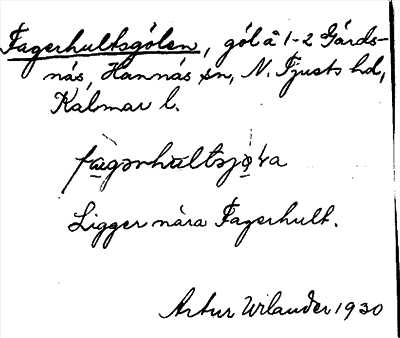 Fagerhultsgölen, göl å 1-2 Gärds-
näs, Hannäs sn, N. Tjusts hd,
Kalmar l.
Ligger nära Fagerhult.
Artur Wilander 1930